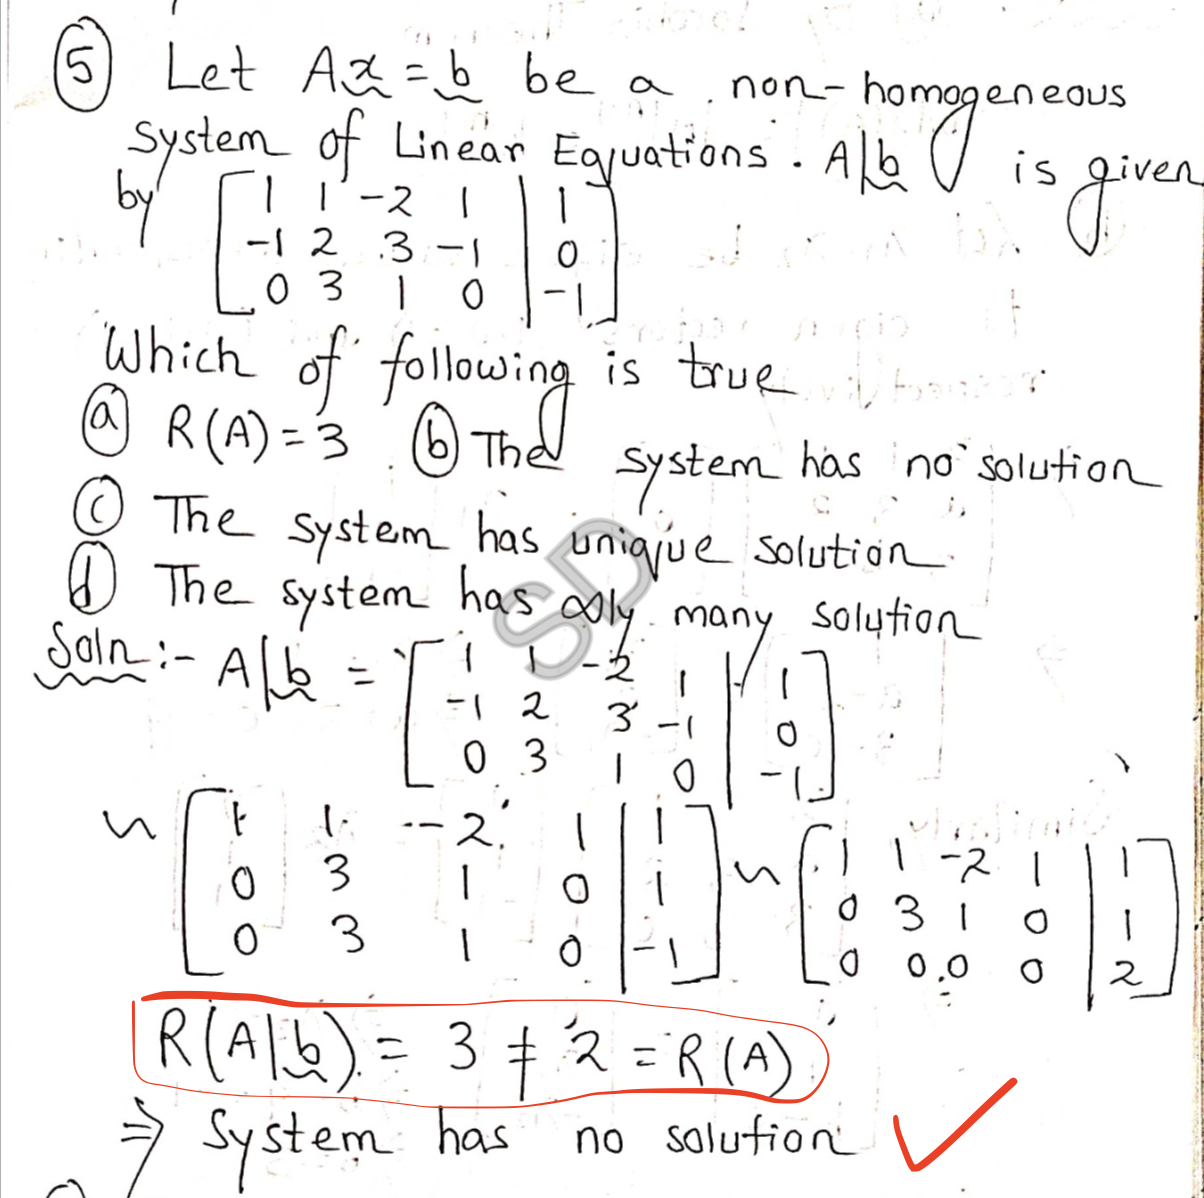 ⑤ Let Ax = b be a non-homogeneous
system of Linear Equations. A|b is given
by [ 1 1 -2 1 | 1 ]
[ -1 2 3 -1 | 0 ]
[ 0 3 1 0 | -1 ]
Which of following is true
ⓐ R(A) = 3 ⓑ The system has no solution
ⓒ The system has unique solution
ⓓ The system has ∞ly many solution
Soln :- A|b = [ 1 1 -2 1 | 1 ]
[ -1 2 3 -1 | 0 ]
[ 0 3 1 0 | -1 ]
~ [ 1 1 -2 1 | 1 ] ~ [ 1 1 -2 1 | 1 ]
[ 0 3 1 0 | 1 ] [ 0 3 1 0 | 1 ]
[ 0 3 1 0 | -1 ] [ 0 0 0 0 | 2 ]
R(A|b) = 3 ≠ 2 = R(A)
⇒ System has no solution ✓
SD